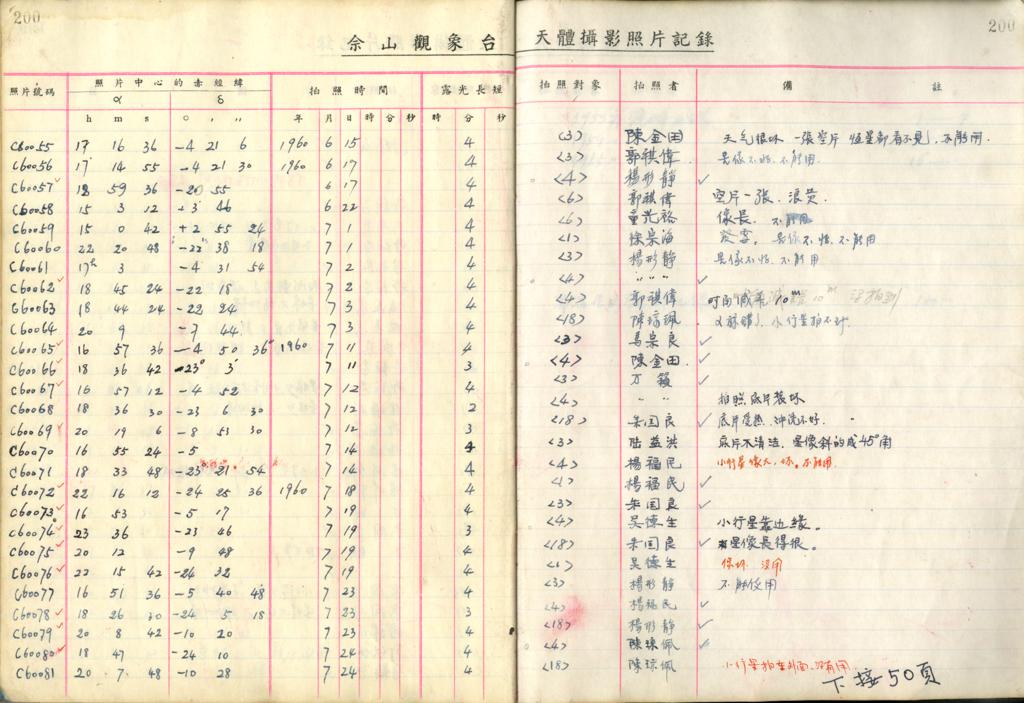 200
200
佘山觀象台 天體攝影照片記錄
照片號碼 照片中心的赤經緯 拍照時間 露光長短 拍照對象 拍照者 備註
α δ
h m s ○ , ,, 年 月 日 時 分 秒 時 分 秒
C60055 17 16 36 -4 21 6 1960 6 15 4 <3> 陳金田 天气很坏 一張空片 恒星都看不見, 不能用.
C60056 17 14 55 -4 21 30 1960 6 17 4 <3> 郭祺偉 星像不怡. 不能用.
C60057 18 59 36 -20 55 6 17 4 <4> 楊彤靜 ✓
C60058 15 3 12 +3 46 6 22 4 <6> 郭祺偉 空片一張.
C60059 15 0 42 +2 55 24 7 1 4 <6> 童光裕 像長. 不能用
C60060 22 20 48 -22 38 18 7 1 4 <1> 徐宗海 星像不怡. 不能用
C60061 17h 3 -4 31 54 7 2 4 <3> 楊彤靜 星像不怡. 不能用
C60062 18 45 24 -22 18 7 2 4 <4> " " " ✓
C60063 18 44 24 -22 24 7 3 4 <4> 郭祺偉 10m 10m 沒拍到
C60064 20 9 -7 44 7 3 4 <18> 小行星拍不到.
C60065 16 57 36 -4 50 36 1960 7 11 4 <3> 馬宗良 ✓
C60066 18 36 42 -23° 3' 7 11 3 <4> 陳金田 ✓
C60067 16 57 12 -4 52 7 12 4 <3> 万籟 ✓
C60068 18 36 30 -23 6 30 7 12 2 <4> " " 拍照底片裝坏
C60069 20 19 6 -8 53 30 7 12 3 <18> 朱国良 ✓ 底片受熱 冲洗不好.
C60070 16 55 24 -5 7 14 4 <3> 陆益洪 底片不清洁, 星像斜的成45°角
C60071 18 33 48 -23 21 54 7 14 4 <4> 楊福民 小行星像大, 坏. 不能用
C60072 22 16 12 -24 25 36 1960 7 18 4 <1> 楊福民 ✓
C60073 16 53 -5 17 7 19 4 <3> 朱国良 ✓
C60074 23 36 -23 46 7 19 3 <4> 吴德生 小行星靠边緣。
C60075 20 12 -9 48 7 19 4 <18> 朱国良 ✓ 星像長得很。
C60076 22 15 42 -24 32 7 19 4 <1> 吴德生 像坏. 沒用
C60077 16 51 36 -5 40 48 7 23 4 <3> 楊彤靜 不能使用
C60078 18 26 30 -24 5 18 7 23 3 <4> 楊福民 ✓
C60079 20 8 42 -10 20 7 23 4 <18> 楊彤靜 ✓
C60080 18 47 -24 10 7 24 4 <4> 陳琼佩 ✓
C60081 20 7 48 -10 28 7 24 4 <18> 陳琼佩 小行星拍在外面. 沒有用.
下接50頁